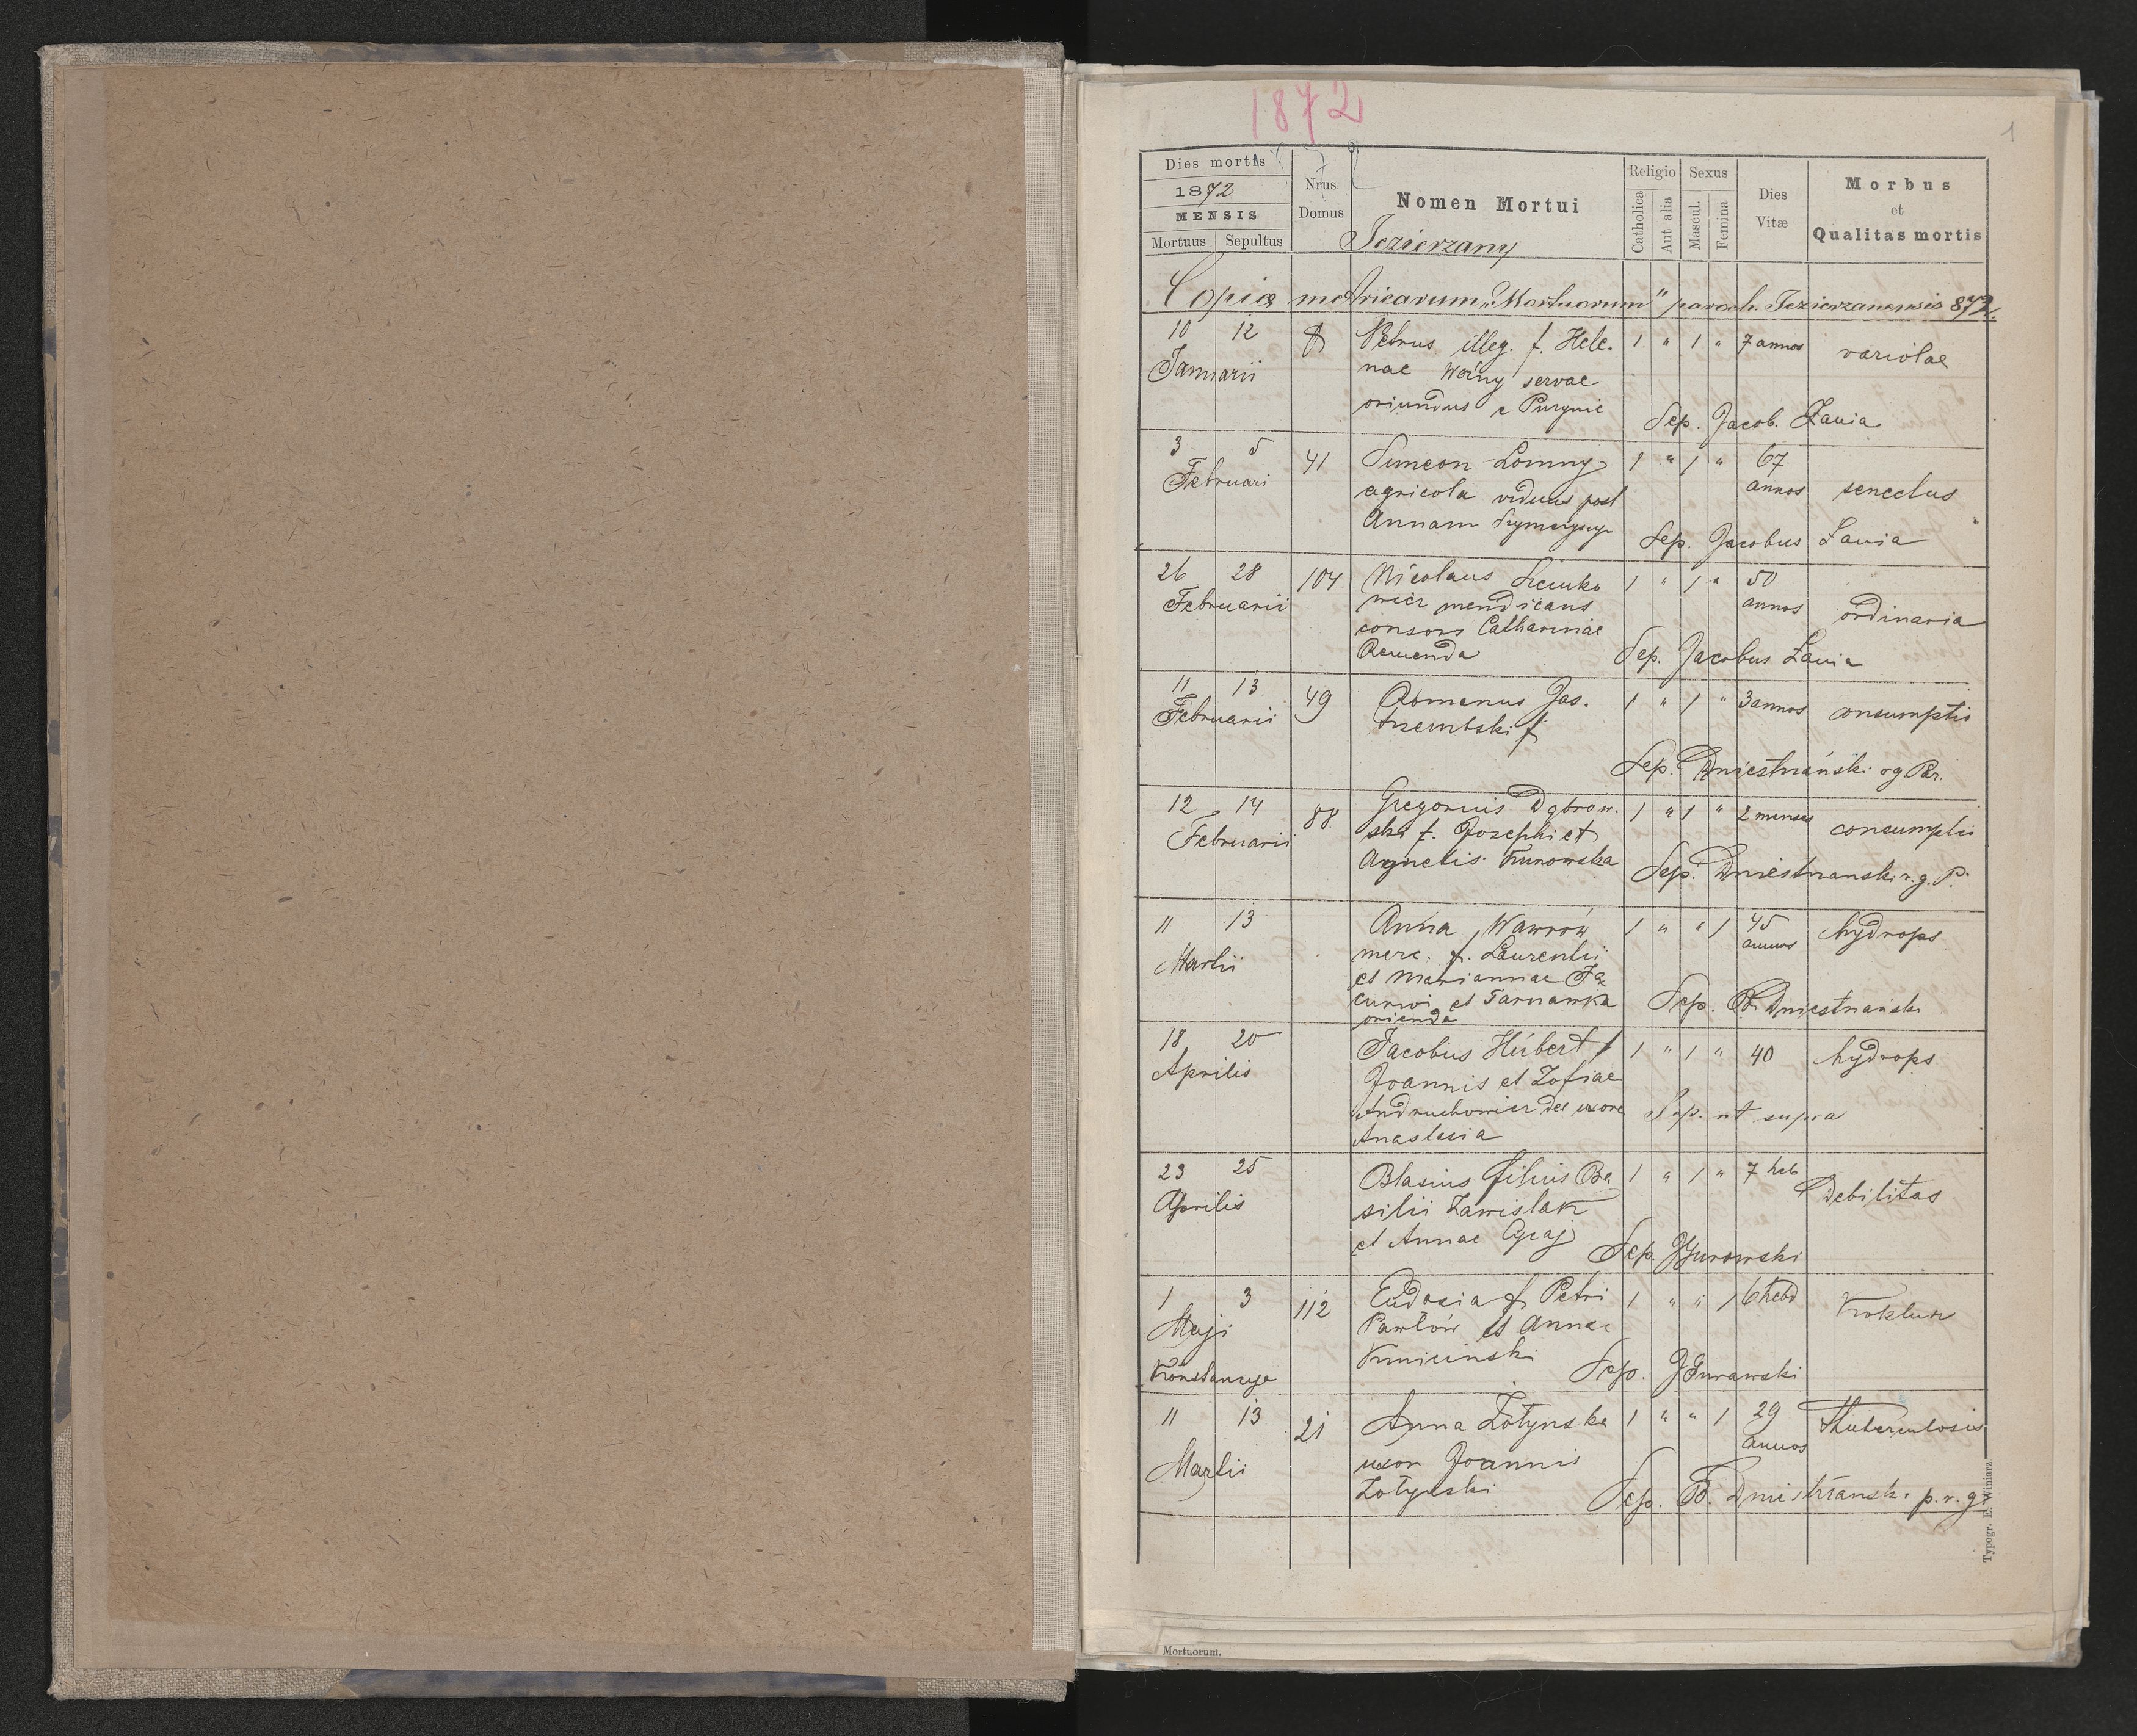 1872
1
Dies mortis
1872
MENSIS
Mortuus Sepultus
Nrus. Domus
Nomen Mortui
Jezierzany
Religio
Catholica Aut alia
Sexus
Mascul. Femina
Dies Vitæ
Morbus
et
Qualitas mortis
Copia metricarum „Mortuorum" paroch. Jezierzanensis 872.
10 12 Petrus illeg. f. Hele- 1 " 1 " 7 annos variolae
Januarii nae servae
oriundus e
Sep. Jacob. Zawia
3 5 41 Simeon Lomny 1 " 1 " 67
Februari agricola viduus post annos senectus
Annam
Sep. Jacobus Lawia
26 28 104 Nicolaus 1 " 1 " 50
Februarii mendicans annos ordinaria
consors Catharinae
Sep. Jacobus Lawia
11 13 49 Romanus Jas- 1 " 1 " 3 annos consumptio
Februarii trzembski f
Sep. Dniestrański rg Par.
12 14 88 Gregorius Dąbrow- 1 " 1 " 2 menses
Februarii ski f. Josephi et consumptio
Agnetis Kunowska
Sep. Dniestranski r. g. P.
11 13 Anna Wawrów 1 " " 1 45 hydrops
Martii merc. f. Laurentii annos
et Mariannae Ja
et Tarnawka
orienda
Sep. B. Dniestrański
18 20 Jacobus Hubert f 1 " 1 " 40 hydrops
Aprilis Joannis et Zofiae
Andruchowicz de uxore
Anastasia
Sep. ut supra
23 25 Blasius filius Ba 1 " 1 " 7 heb
Aprilis silii Zawislak Debilitas
et Annae
Sep. JGurowski
1 3 112 Eudosia f. Petri 1 " " 1 6 hebd Koklusz
Maji Pawłów et Annae
Konstancya Kmicinski
Sep. JGurawski
11 13 21 Anna Zołynska 1 " " 1 29 Thuberculosis
Martii uxor Joannis annos
Zołynski
Sep. B. Dniestransk. p. r. g
Typogr. E. Winiarz
Mortuorum.